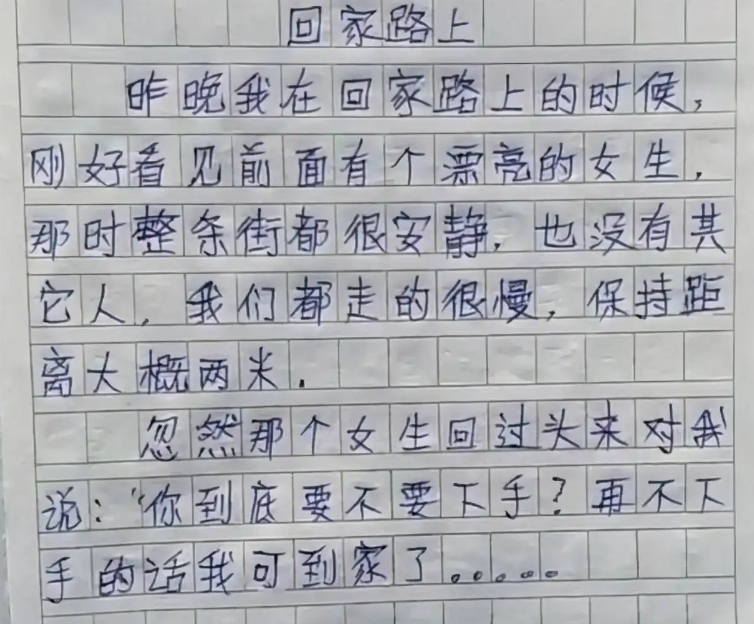 回家路上
昨晚我在回家路上的时候,
刚好看见前面有个漂亮的女生,
那时整条街都很安静,也没有其
它人,我们都走的很慢,保持距
离大概两米.
忽然那个女生回过头来对我
说:"你到底要不要下手?再不下
手的话我可到家了。。。。。